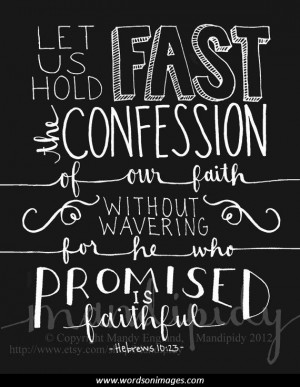 LET
US
HOLD
FAST
the CONFESSION
of our faith
WITHOUT
WAVERING
for he who
PROMISED
IS
faithful
-Hebrews 10:23
mandipidy
© Copyright Mandy England, Mandipidy 2012
http://www.etsy.com/
www.wordsonimages.com